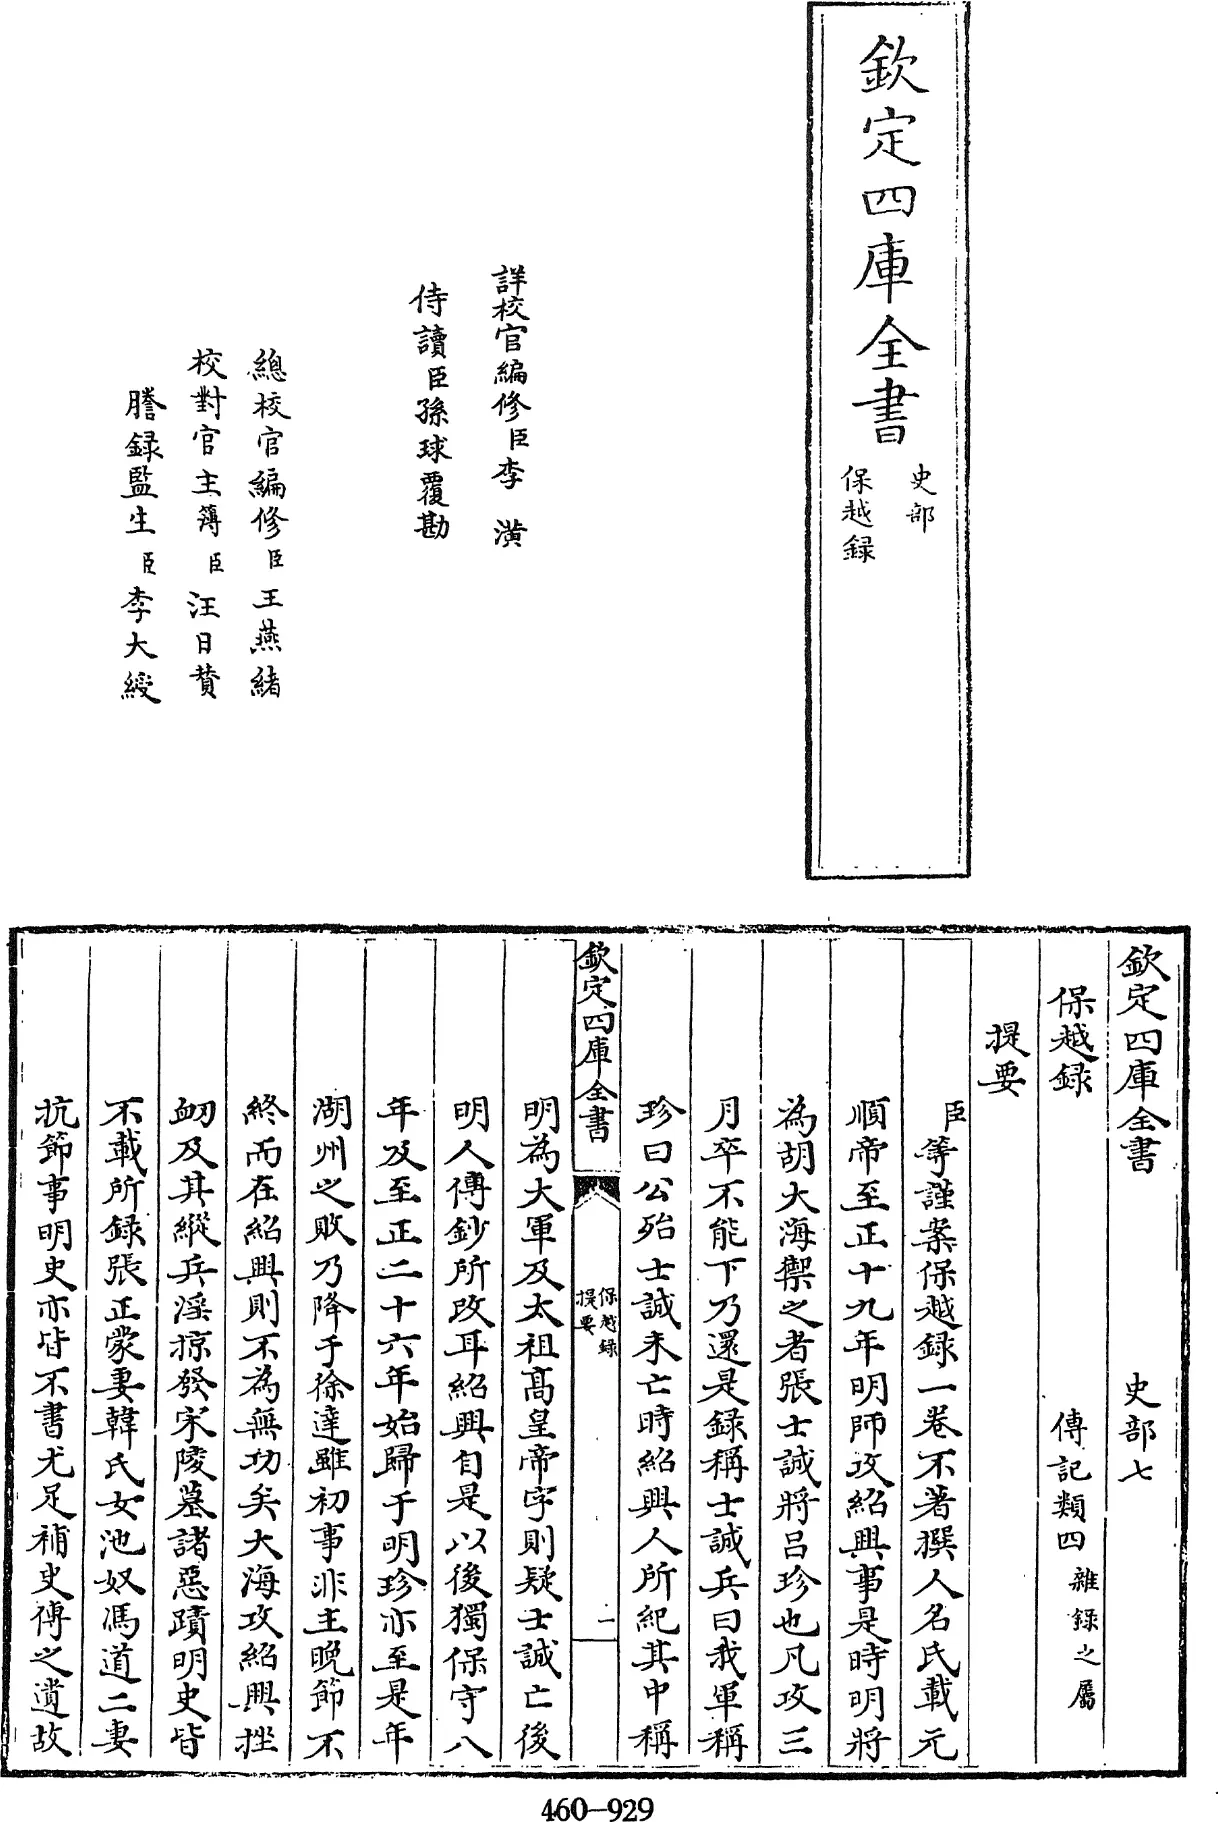 欽定四庫全書
史部
保越録
詳校官編修臣李潢
侍讀臣孫球覆勘
總校官編修臣王燕緒
校對官主簿臣汪日贊
謄録監生臣李大綬
欽定四庫全書 史部七
保越録 傳記類四雜録之屬
提要
臣等謹案保越録一卷不著撰人名氏載元
順帝至正十九年明師攻紹興事是時明將
為胡大海禦之者張士誠將吕珍也凡攻三
月卒不能下乃還是録稱士誠兵曰我軍稱
珍曰公殆士誠未亡時紹興人所紀其中稱
欽定四庫全書
保越録
提要
一
明為大軍及太祖髙皇帝字則疑士誠亡後
明人傳鈔所改耳紹興自是以後獨保守八
年及至正二十六年始歸于明珍亦至是年
湖州之敗乃降于徐達雖初事非主晩節不
終而在紹興則不為無功矣大海攻紹興挫
衂及其縱兵淫掠發宋陵墓諸惡蹟明史皆
不載所録張正蒙妻韓氏女池奴馮道二妻
抗節事明史亦皆不書尤足補史傳之遺故
460-929